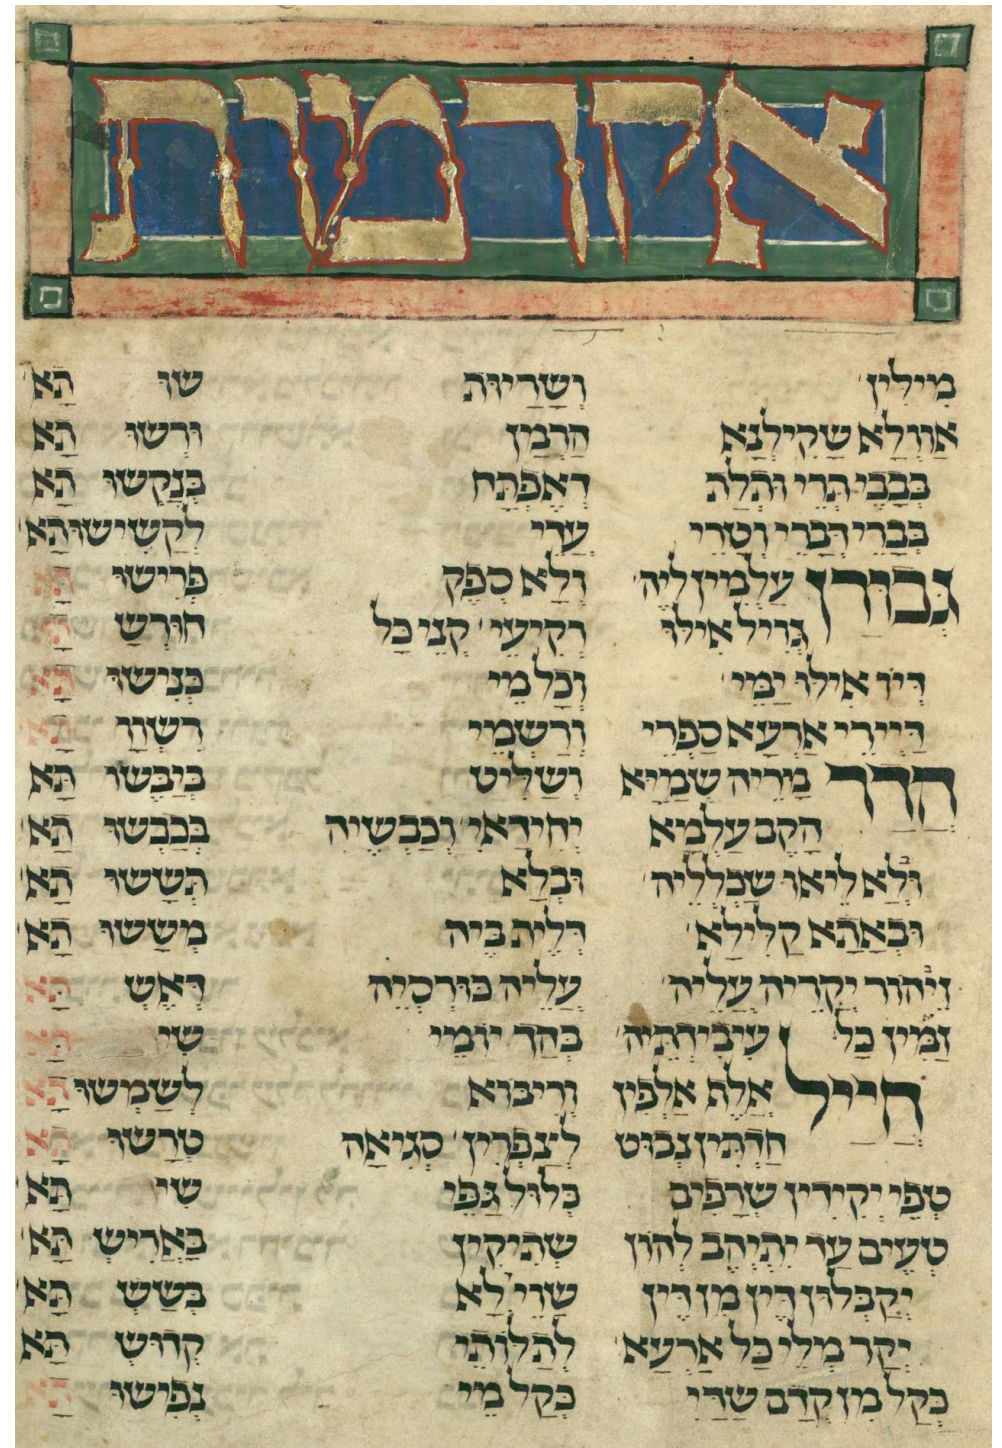 אקדמות
מִילִּין וְשָׁרָיוּת שׁוּ תָא
אַוְולָא שָׁקִילְנָא הַרְמַן וּרְשׁוּ תָא
בְּבָבֵי תְּרֵי וּתְלַת דְאֶפְתַּח בְּנַקְשׁוּ תָא
בְּבָרֵי דְבָרֵי וְטָרֵי עֲדֵי לְקַשִּׁישׁוּתָא
גְּבוּרָן עָלְמִין לֵיהּ וְלָא סְפֵק פְּרִישׁוּ תָא
גְּוִיל אִילּוּ רְקִיעֵי קְנֵי כָּל חוּרְשָׁ תָא
דְּיוֹ אִילּוּ יַמֵּי וְכָל מֵי כְּנִישׁוּ תָא
דָּיְירֵי אַרְעָא סָפְרֵי וְרָשְׁמֵי רַשְׁוָ תָא
הֲדַר מָרֵיהּ שְׁמַיָּא וְשַׁלִּיט בְּיַבֶּשְׁ תָא
הָקֵם עָלְמָא יְחִידַאי וְכַבְּשֵׁיהּ בְּכַבְּשׁוּ תָא
וּלָא לֵיאוּ שַׁכְלְלֵיהּ וּבְלָא תְשָׁשׁוּ תָא
וּבְאָתָא קַלִּילָא דְּלֵית בֵּיהּ מְשָׁשׁוּ תָא
זֵיהוֹר יְקָרֵיהּ עֲלֵיהּ עֲלֵיהּ כּוּרְסְיֵהּ דְּאֶשָׁ תָא
זַמִּין כָּל עִיבִידְתֵּיהּ בְּהַךְ יוֹמֵי שִׁי תָא
חֵיל אֲלֶף אַלְפִין וְרִיבּוֹא לְשַׁמְשׁוּ תָא
חַדְתִּין נְבוֹט לְצַפְרִין סַגִּיאָה טְרָשׁוּ תָא
טְפֵי יְקִידִין שְׂרָפִים כְּלוּל גַּפֵּי שִׁי תָא
טְעֵים עַד יִתְיְהֵב לְהוֹן שְׁתִיקִין בְּאַדִּישְׁ תָא
יְקַבְּלוּן דֵּין מִן דֵּין שָׁוֵי לָא בְּשַׁשְׁ תָא
יְקַר מְלֵי כָּל אַרְעָא לְתַלּוֹתֵי קְדוּשְׁ תָא
כְּקָל מִן קֳדָם שַׁדַּי כְּקָל מֵי נְפִישׁוּ תָא